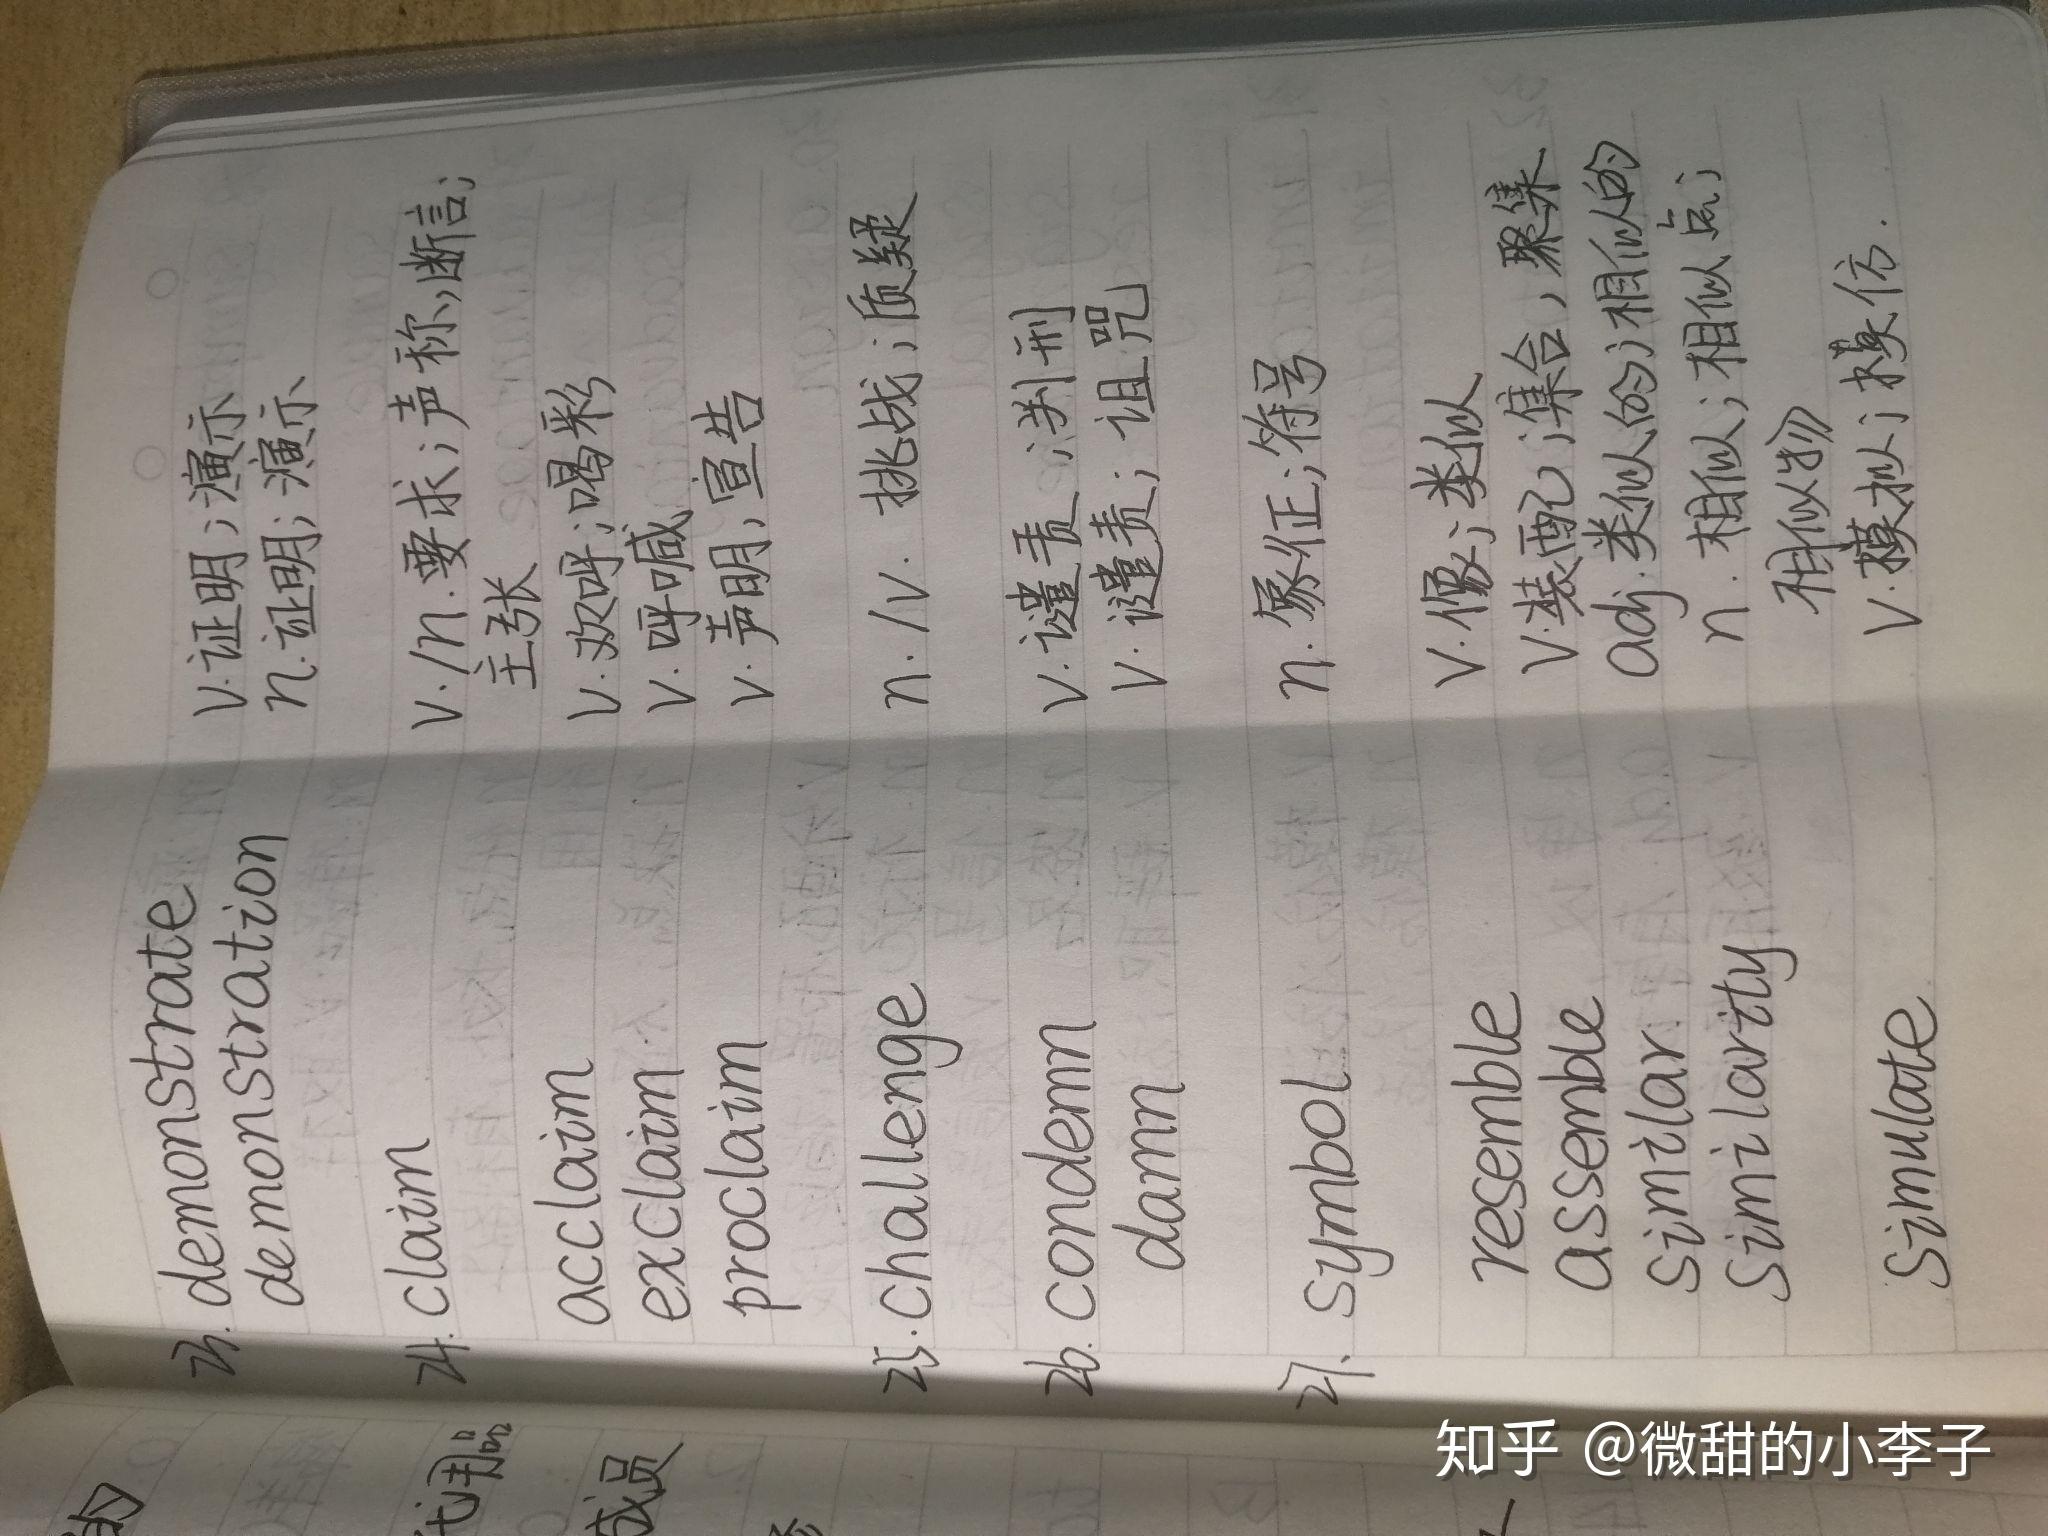 23. demonstrate v.证明；演示
demonstration n.证明；演示
24. claim v./n.要求；声称、断言；
主张
acclaim v.欢呼；喝彩
exclaim v.呼喊
proclaim v.声明，宣告
25. challenge n./v. 挑战；质疑
26. condemn v.谴责；判刑
damn v.谴责；诅咒
27. symbol n.象征；符号
resemble v.像；类似
assemble v.装配；集合，聚集
similar adj.类似的；相似的
similarity n.相似；相似点；
相似物
simulate v.模拟；模仿.
的
代用品
成员
知乎 @微甜的小李子